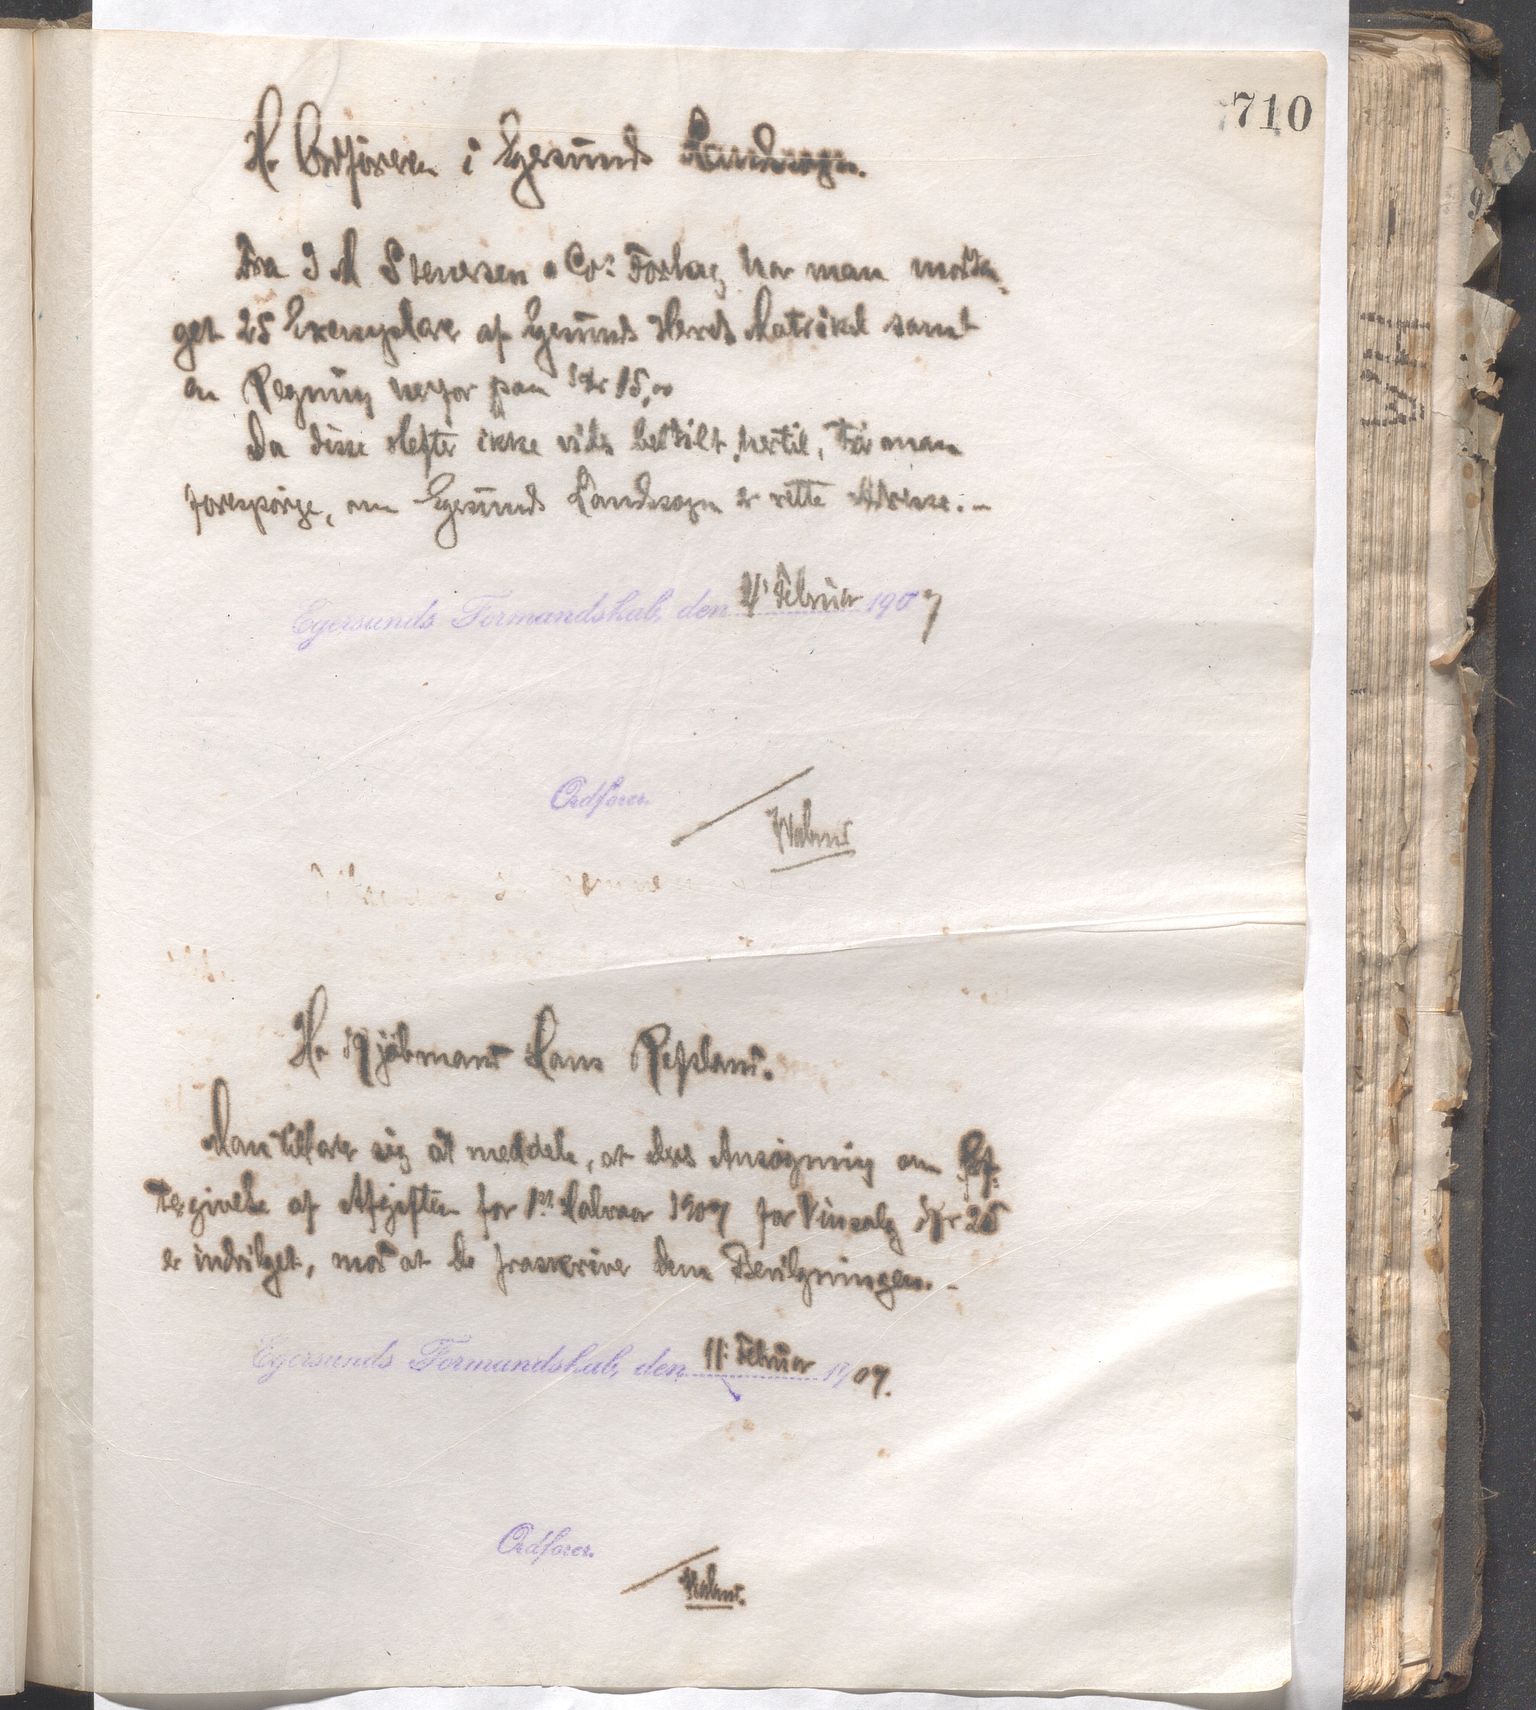 710
Hr Ordføreren i Egersunds Landsogn.
Fra I M Stenersen & Co.s Forlag har man motta-
get 25 Exemplarer af Egersunds Herreds Matrikel samt
en Regning herfor paa Kr 15,00
Da disse Hefter ikke vides bestilt hertil, tør man
forespørge, om Egersunds Landsogn er rette Adresse. –
Egersunds Formandskab, den Februar 1907
Ordfører.
Hr Kjøbmand Hans Refsland.
Man tillader sig at meddele, at Deres Ansøgning om Ef-
tergivelse af Afgiften for 1ste Halvaar 1907 for Vinsalg Kr 25
er indvilget, mod at De fraskriver Dem Bevilgningen. –
Egersunds Formandskab, den 11. Februar 1907.
Ordfører.